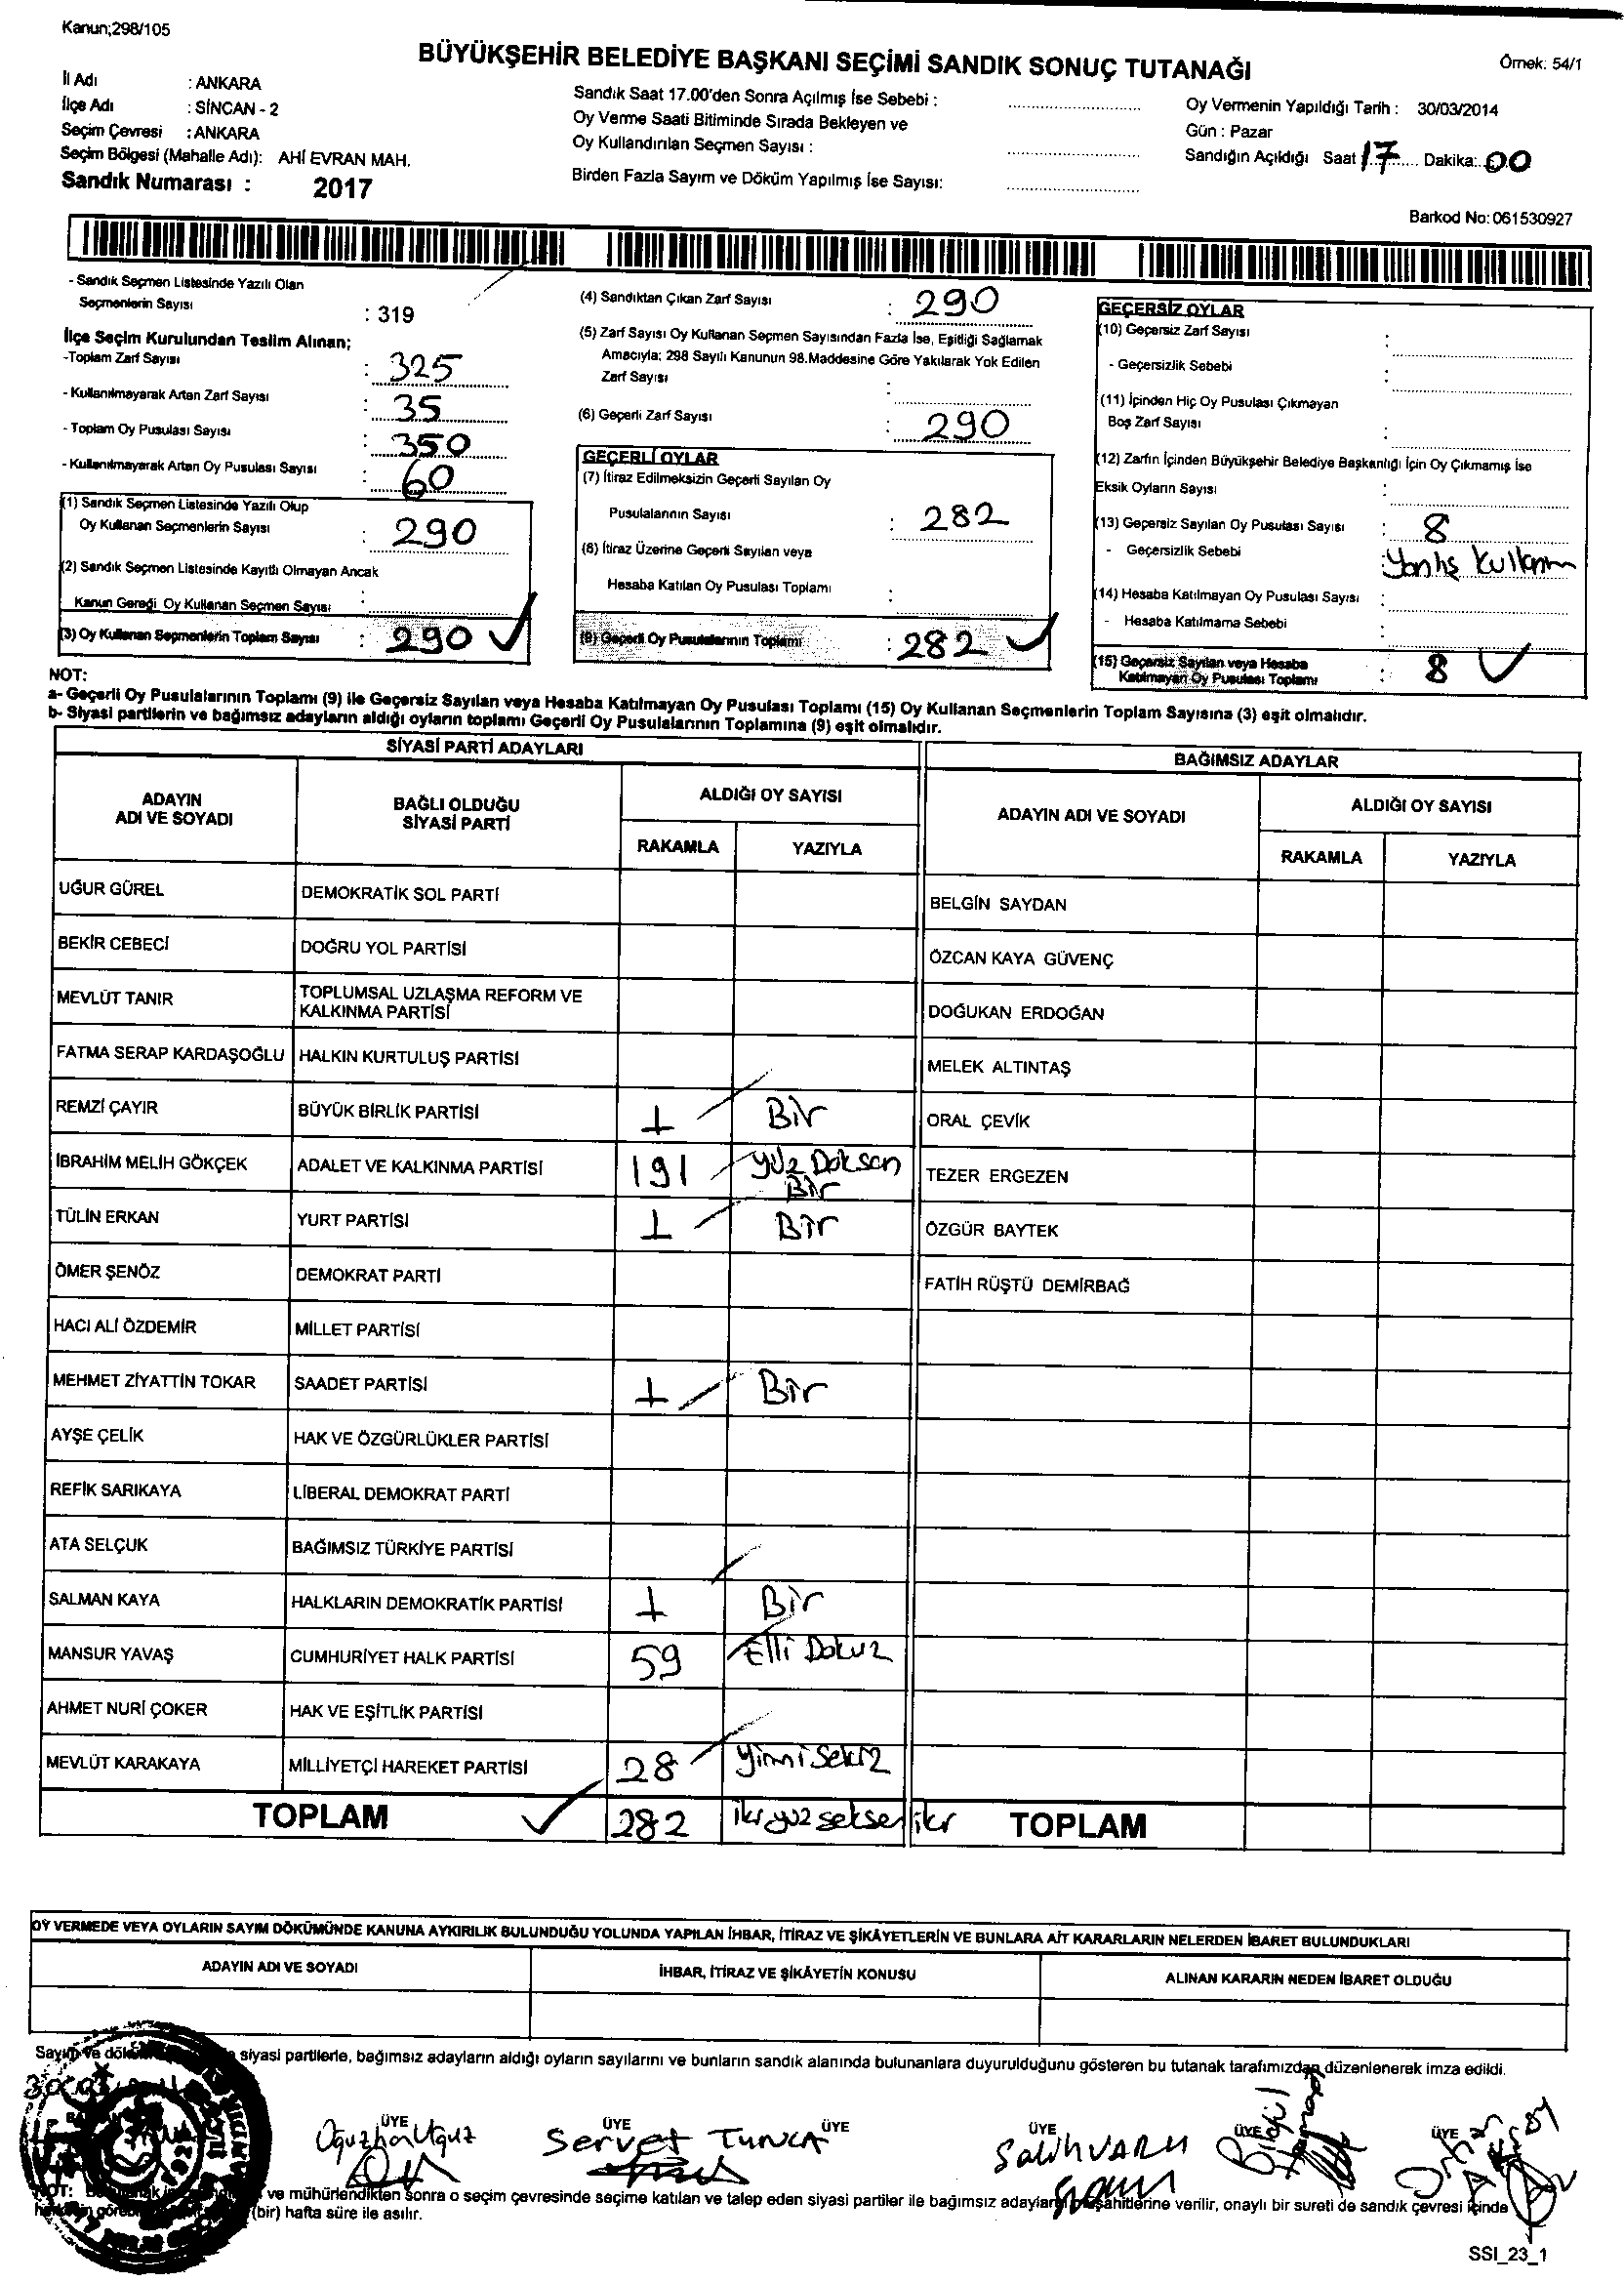 Kanun;298/105
BÜYÜKŞEHİR BELEDİYE BAŞKANI SEÇİMİ SANDIK SONUÇ TUTANAĞI
Örnek: 54/1
İl Adı : ANKARA
İlçe Adı : SİNCAN - 2
Seçim Çevresi : ANKARA
Seçim Bölgesi (Mahalle Adı): AHİ EVRAN MAH.
Sandık Numarası : 2017
Sandık Saat 17.00'den Sonra Açılmış İse Sebebi :
Oy Verme Saati Bitiminde Sırada Bekleyen ve
Oy Kullandırılan Seçmen Sayısı :
Birden Fazla Sayım ve Döküm Yapılmış İse Sayısı:
Oy Vermenin Yapıldığı Tarih : 30/03/2014
Gün : Pazar
Sandığın Açıldığı Saat 17 Dakika: 00
Barkod No: 061530927
- Sandık Seçmen Listesinde Yazılı Olan
Seçmenlerin Sayısı : 319
İlçe Seçim Kurulundan Teslim Alınan;
-Toplam Zarf Sayısı : 325
- Kullanılmayarak Artan Zarf Sayısı : 35
- Toplam Oy Pusulası Sayısı : 350
- Kullanılmayarak Artan Oy Pusulası Sayısı : 60
(1) Sandık Seçmen Listesinde Yazılı Olup
Oy Kullanan Seçmenlerin Sayısı : 290
(2) Sandık Seçmen Listesinde Kayıtlı Olmayan Ancak
Kanun Gereği Oy Kullanan Seçmen Sayısı :
(3) Oy Kullanan Seçmenlerin Toplam Sayısı : 290
(4) Sandıktan Çıkan Zarf Sayısı : 290
(5) Zarf Sayısı Oy Kullanan Seçmen Sayısından Fazla İse, Eşitliği Sağlamak
Amacıyla; 298 Sayılı Kanunun 98.Maddesine Göre Yakılarak Yok Edilen
Zarf Sayısı :
(6) Geçerli Zarf Sayısı : 290
GEÇERLİ OYLAR
(7) İtiraz Edilmeksizin Geçerli Sayılan Oy
Pusulalarının Sayısı : 282
(8) İtiraz Üzerine Geçerli Sayılan veya
Hesaba Katılan Oy Pusulası Toplamı :
(9) Geçerli Oy Pusulalarının Toplamı : 282
GEÇERSİZ OYLAR
(10) Geçersiz Zarf Sayısı :
- Geçersizlik Sebebi :
(11) İçinden Hiç Oy Pusulası Çıkmayan
Boş Zarf Sayısı :
(12) Zarfın İçinden Büyükşehir Belediye Başkanlığı İçin Oy Çıkmamış İse
Eksik Oyların Sayısı :
(13) Geçersiz Sayılan Oy Pusulası Sayısı : 8
- Geçersizlik Sebebi : Yanlış kullanım
(14) Hesaba Katılmayan Oy Pusulası Sayısı :
- Hesaba Katılmama Sebebi :
(15) Geçersiz Sayılan veya Hesaba
Katılmayan Oy Pusulası Toplamı : 8
NOT:
a- Geçerli Oy Pusulalarının Toplamı (9) ile Geçersiz Sayılan veya Hesaba Katılmayan Oy Pusulası Toplamı (15) Oy Kullanan Seçmenlerin Toplam Sayısına (3) eşit olmalıdır.
b- Siyasi partilerin ve bağımsız adayların aldığı oyların toplamı Geçerli Oy Pusulalarının Toplamına (9) eşit olmalıdır.
SİYASİ PARTİ ADAYLARI
ADAYIN ADI VE SOYADI
BAĞLI OLDUĞU SİYASİ PARTİ
ALDIĞI OY SAYISI
RAKAMLA YAZIYLA
UĞUR GÜREL DEMOKRATİK SOL PARTİ
BEKİR CEBECİ DOĞRU YOL PARTİSİ
MEVLÜT TANIR TOPLUMSAL UZLAŞMA REFORM VE KALKINMA PARTİSİ
FATMA SERAP KARDAŞOĞLU HALKIN KURTULUŞ PARTİSİ
REMZİ ÇAYIR BÜYÜK BİRLİK PARTİSİ 1 Bir
İBRAHİM MELİH GÖKÇEK ADALET VE KALKINMA PARTİSİ 191 Yüz Doksan Bir
TÜLİN ERKAN YURT PARTİSİ 1 Bir
ÖMER ŞENÖZ DEMOKRAT PARTİ
HACI ALİ ÖZDEMİR MİLLET PARTİSİ
MEHMET ZİYATTİN TOKAR SAADET PARTİSİ 1 Bir
AYŞE ÇELİK HAK VE ÖZGÜRLÜKLER PARTİSİ
REFİK SARIKAYA LİBERAL DEMOKRAT PARTİ
ATA SELÇUK BAĞIMSIZ TÜRKİYE PARTİSİ
SALMAN KAYA HALKLARIN DEMOKRATİK PARTİSİ 1 Bir
MANSUR YAVAŞ CUMHURİYET HALK PARTİSİ 59 Elli Dokuz
AHMET NURİ ÇOKER HAK VE EŞİTLİK PARTİSİ
MEVLÜT KARAKAYA MİLLİYETÇİ HAREKET PARTİSİ 28 Yirmi Sekiz
TOPLAM 282 iki yüz seksen iki
BAĞIMSIZ ADAYLAR
ADAYIN ADI VE SOYADI
ALDIĞI OY SAYISI
RAKAMLA YAZIYLA
BELGİN SAYDAN
ÖZCAN KAYA GÜVENÇ
DOĞUKAN ERDOĞAN
MELEK ALTINTAŞ
ORAL ÇEVİK
TEZER ERGEZEN
ÖZGÜR BAYTEK
FATİH RÜŞTÜ DEMİRBAĞ
TOPLAM
OY VERMEDE VEYA OYLARIN SAYIM DÖKÜMÜNDE KANUNA AYKIRILIK BULUNDUĞU YOLUNDA YAPILAN İHBAR, İTİRAZ VE ŞİKÂYETLERİN VE BUNLARA AİT KARARLARIN NELERDEN İBARET BULUNDUKLARI
ADAYIN ADI VE SOYADI
İHBAR, İTİRAZ VE ŞİKÂYETİN KONUSU
ALINAN KARARIN NEDEN İBARET OLDUĞU
Sayım ve siyasi partilerle, bağımsız adayların aldığı oyların sayılarını ve bunların sandık alanında bulunanlara duyurulduğunu gösteren bu tutanak tarafımızdan düzenlenerek imza edildi.
ÜYE ÜYE ÜYE ÜYE ÜYE ÜYE
Oğuzhan Uğuz Servet TUNCA Salih VARLI
NOT: ve mühürlendikten sonra o seçim çevresinde seçime katılan ve talep eden siyasi partiler ile bağımsız adayların müşahitlerine verilir, onaylı bir sureti de sandık çevresi içinde
(bir) hafta süre ile asılır.
SSI_23_1